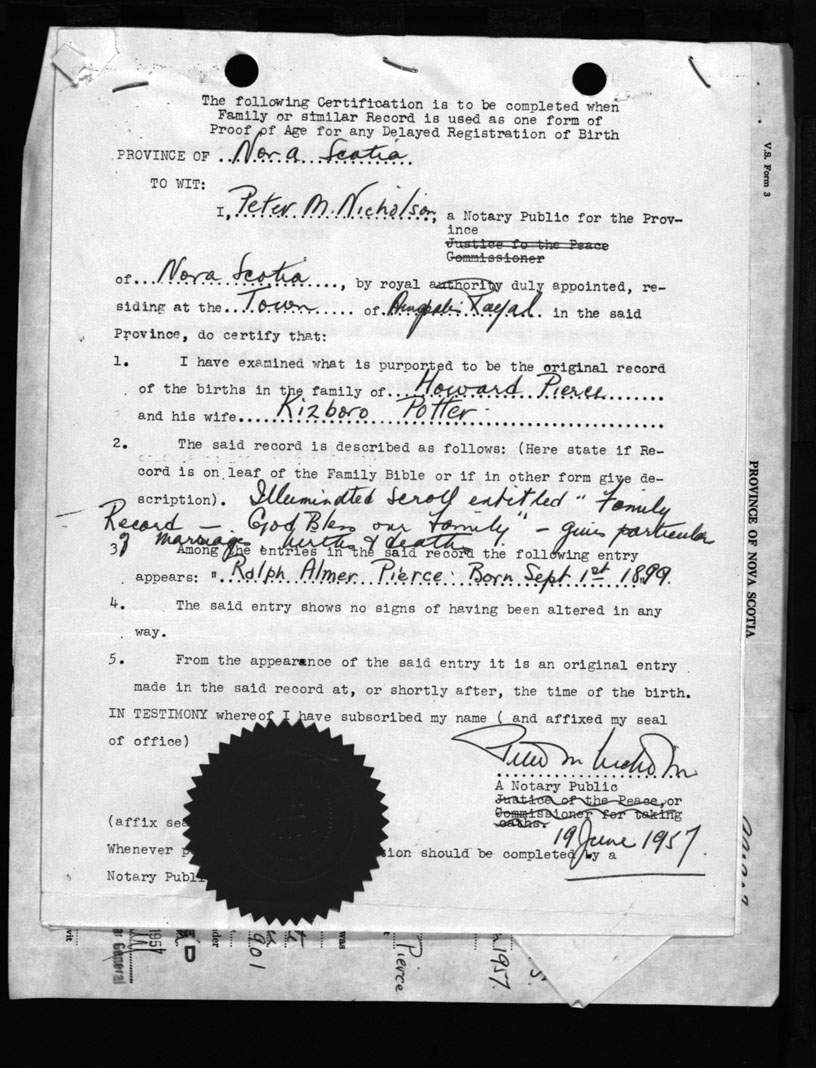 The following Certification is to be completed when
Family or similar Record is used as one form of
Proof of Age for any Delayed Registration of Birth
V.S. Form 3
PROVINCE OF ..Nova Scotia.
TO WIT:
I, Peter M. Nicholson, a Notary Public for the Prov-
ince
Justice fo the Peace
Commissioner
of...Nova Scotia....., by royal authority duly appointed, re-
siding at the...Town..... of Annapolis Royal. in the said
Province, do certify that:
1. I have examined what is purported to be the original record
of the births in the family of...Howard Pierce.......
and his wife....Kizboro Potter
2. The said record is described as follows: (Here state if Re-
cord is on leaf of the Family Bible or if in other form give de-
scription). Illuminated Scroll entitled "Family
Record — God Bless our Family" — gives particular
of marriage births & death
3. Among the entries in the said record the following entry
appears: "Ralph Almer Pierce. Born Sept 1st 1899.
4. The said entry shows no signs of having been altered in any
way.
5. From the appearance of the said entry it is an original entry
made in the said record at, or shortly after, the time of the birth.
IN TESTIMONY whereof I have subscribed my name ( and affixed my seal
of office)
Peter M Nicholson
A Notary Public
Justice of the Peace, or
Commissioner for taking
oaths.
19 June 1957.
(affix sea
Whenever p
ion should be completed by a
Notary Publ
PROVINCE OF NOVA SCOTIA
1957
General
901
was
Pierce
1957.